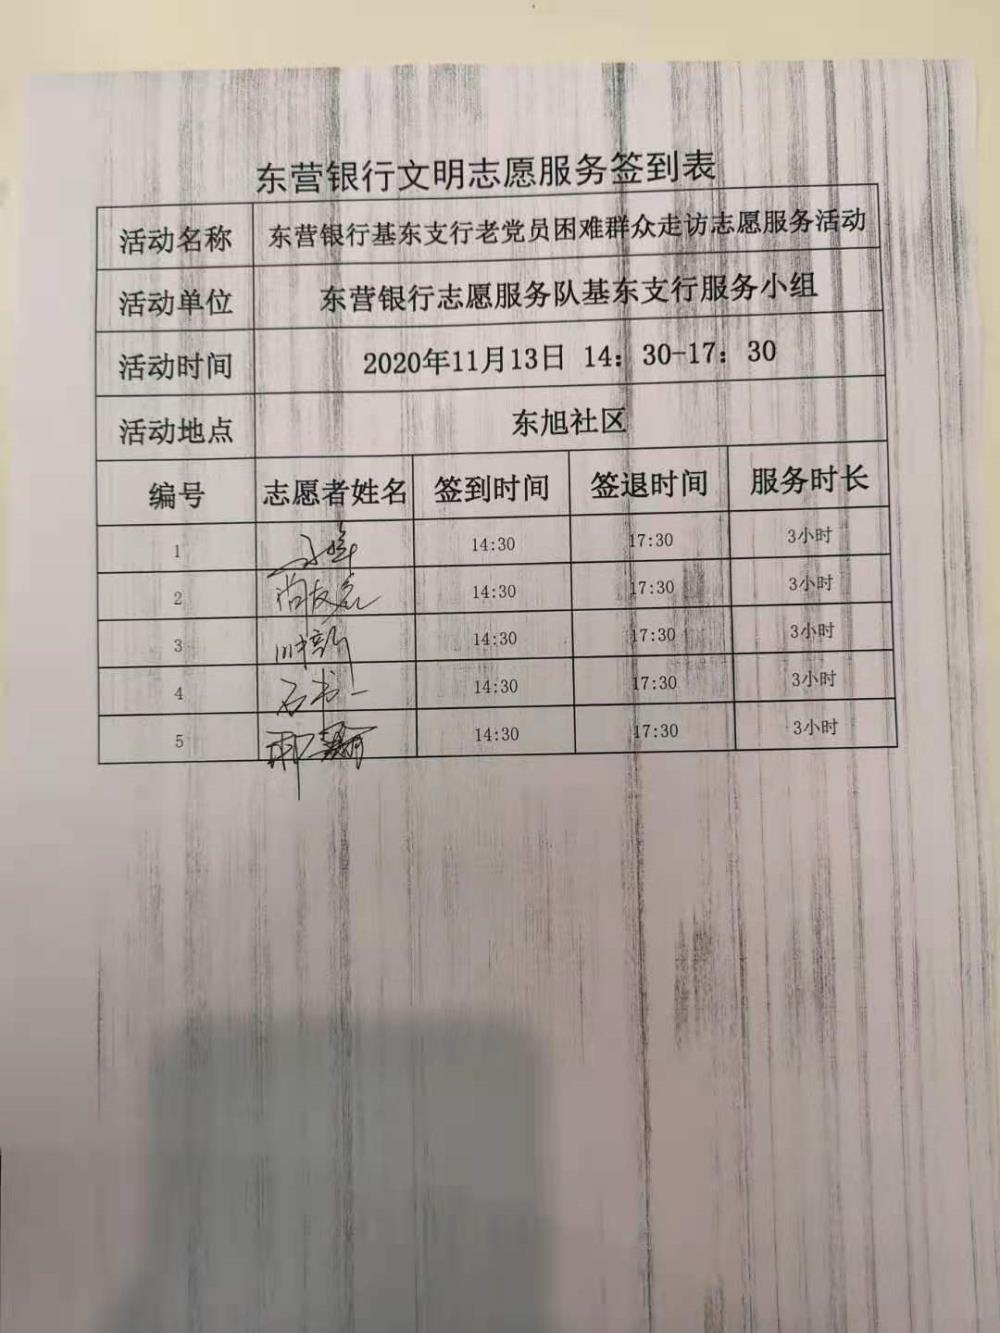 东营银行文明志愿服务签到表
活动名称 东营银行基东支行老党员困难群众走访志愿服务活动
活动单位 东营银行志愿服务队基东支行服务小组
活动时间 2020年11月13日 14：30-17：30
活动地点 东旭社区
编号 志愿者姓名 签到时间 签退时间 服务时长
1 14:30 17:30 3小时
2 14:30 17:30 3小时
3 14:30 17:30 3小时
4 14:30 17:30 3小时
5 14:30 17:30 3小时